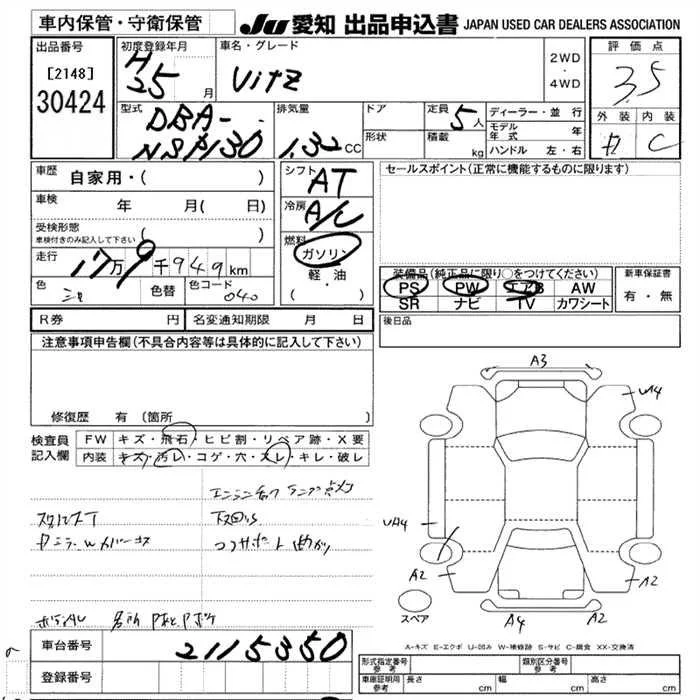 車内保管・守衛保管
JU 愛知 出品申込書 JAPAN USED CAR DEALERS ASSOCIATION
出品番号
[2148]
30424
初度登録年月
H
25 月
車名・グレード
Vitz
2WD
・
4WD
評価点
3.5
外装 内装
C
型式
DBA-
NSP130
排気量
1.32 CC
ドア
形状
定員 5 人
積載 kg
ディーラー・並行
モデル年式 年
ハンドル 左・右
車歴 自家用・( )
車検 年 月( 日)
受検形態
車検付きのみ記入して下さい
走行 17万9千949km
色
色替
色コード
040
シフト AT
冷房 A/C
燃料
ガソリン
軽・油
( ・ )
セールスポイント(正常に機能するものに限ります)
装備品(純正品に限り○をつけてください)
PS PW エアB AW
SR ナビ TV カワシート
新車保証書
有・無
R券 円 名変通知期限 月 日
後日品
注意事項申告欄(不具合内容等は具体的に記入して下さい)
修復歴 有(箇所
検査員
記入欄
FW キズ・飛石・ヒビ割・リペア跡・X要
内装 キズ・汚レ・コゲ・穴・スレ・キレ・破レ
エンジンチェックランプ点灯
下回りS
コアサポート曲がり
A3
UA4
UA4
A2
A2
A4
A2
スペア
A-キズ E-エクボ U-凹み W-補修跡 S-サビ C-腐食 XX-交換済
車台番号 2115350
登録番号
型式指定番号
参考
類別区分番号
参考
車庫証明用
参考
長さ cm 幅 cm 高さ cm